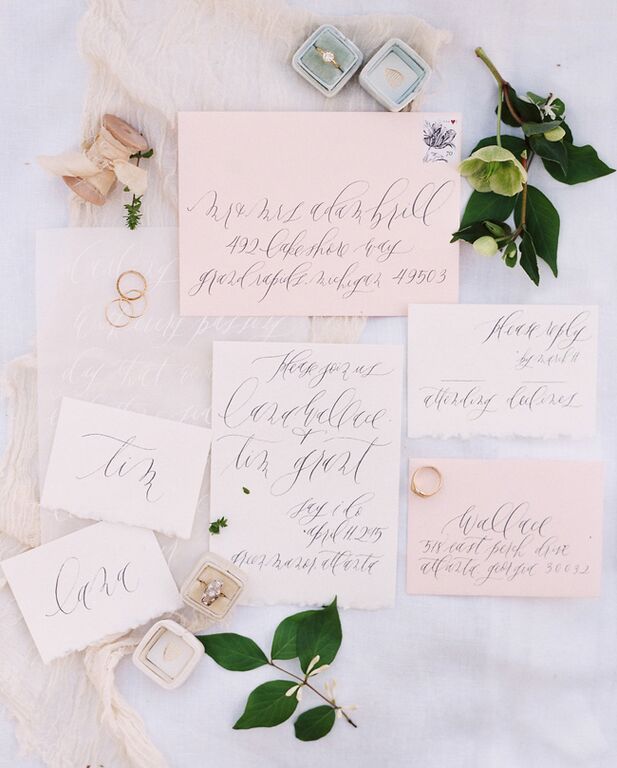 mr & mrs adam brill
492 lakeshore way
grand rapids. michigan 49503
70
Please reply
by march 11
attending declines
Please join us
lana wallace
+
tim grant
say i do
april 11
green manor. atlanta
tim
lana
Wallace
518 east drive
atlanta, georgia 30032